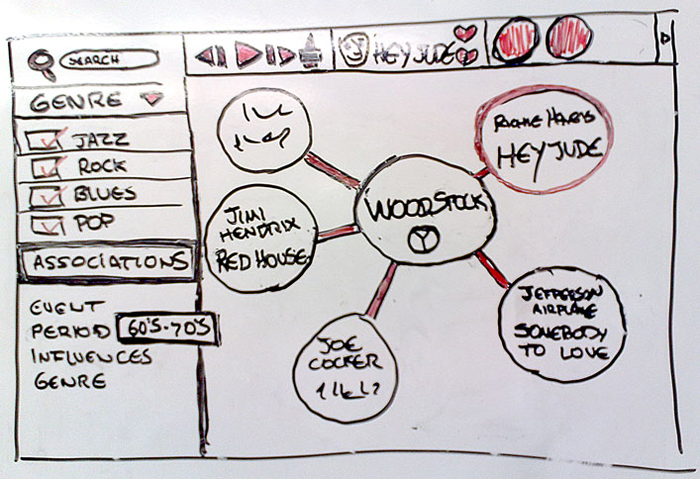 SEARCH
HEY JUDE
GENRE
JAZZ
ROCK
BLUES
POP
ASSOCIATIONS
EVENT
PERIOD 60'S-70'S
INFLUENCES
GENRE
WOODSTOCK
HEY JUDE
JIMI
HENDRIX
RED HOUSE
JOE
COCKER
JEFFERSON
AIRPLANE
SOMEBODY
TO LOVE